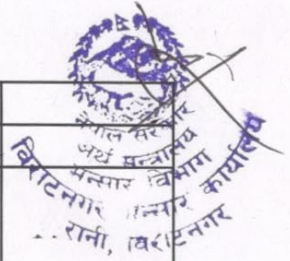 नेपाल सरकार
अर्थ मन्त्रालय
भन्सार विभाग
विराटनगर भन्सार कार्यालय
रानी, विराटनगर